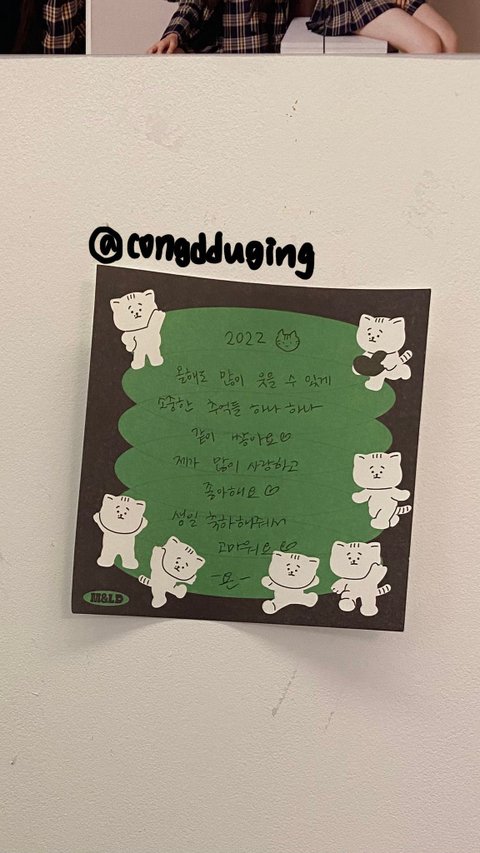 @congdduging
2022
올해도 많이 웃을 수 있게
소중한 추억들 하나 하나
같이 쌓아요♡
제가 많이 사랑하고
좋아해요♡
생일 축하해줘서
고마워요♡
-욘-
M&LD